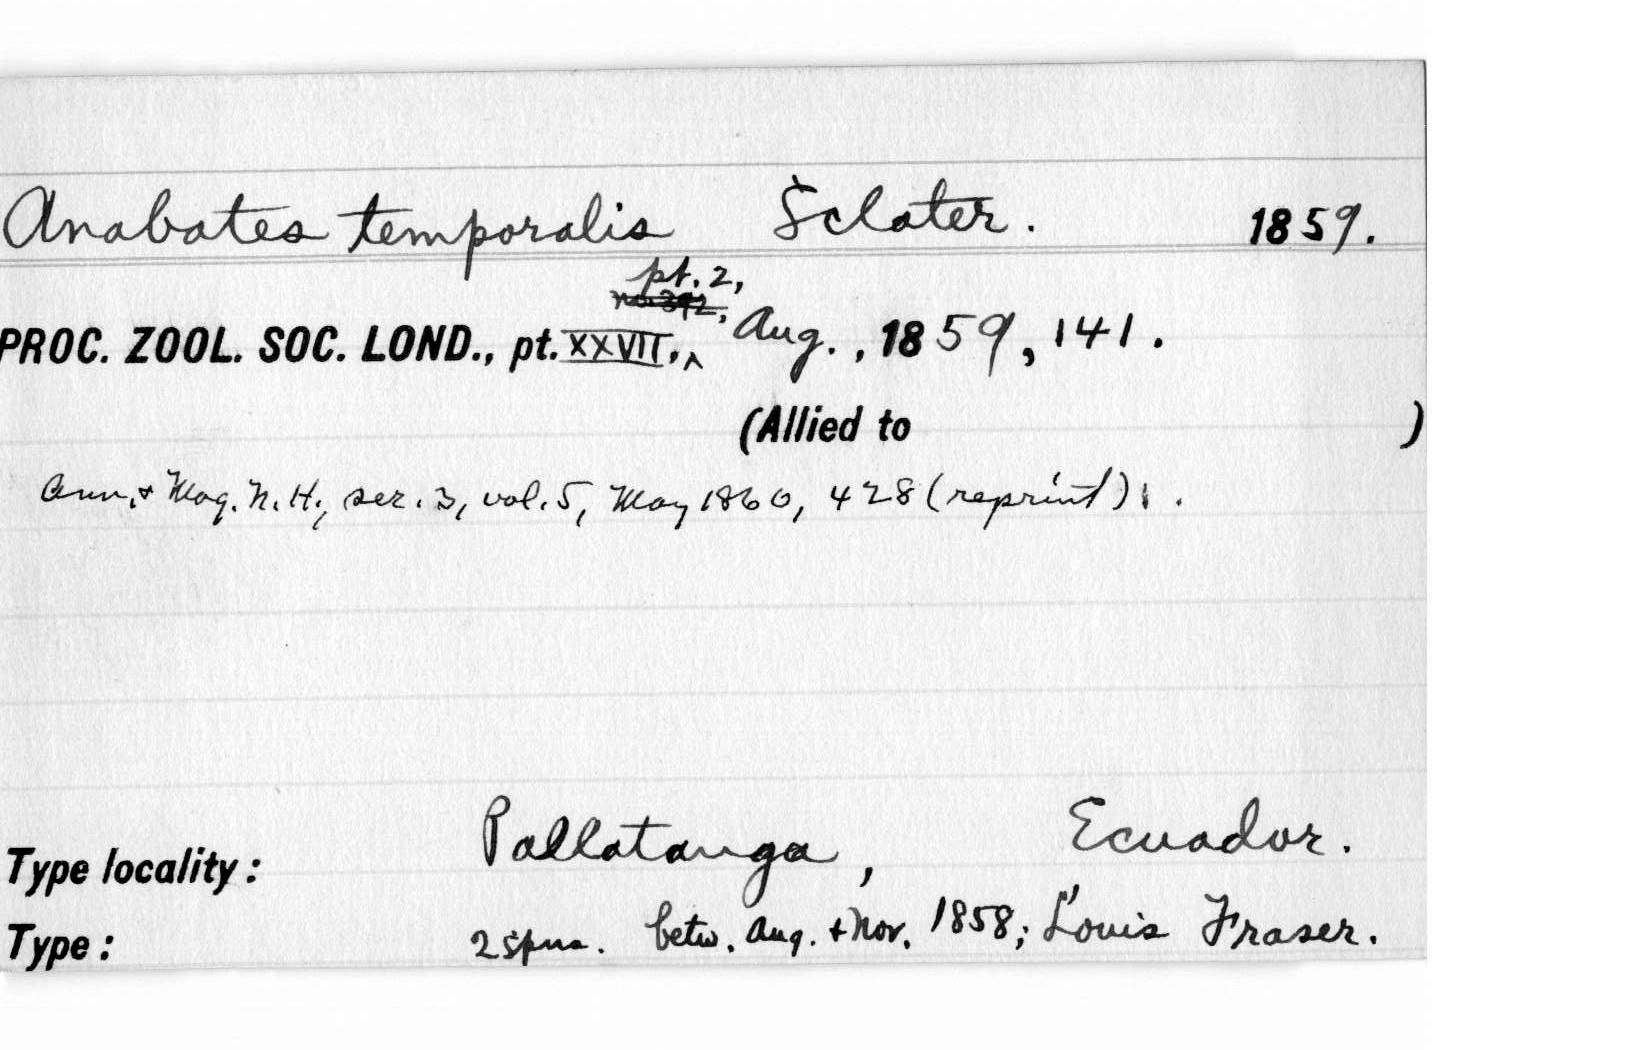 Anabates temporalis Sclater. 1859.
pt. 2,
no. 392,
PROC. ZOOL. SOC. LOND., pt. XXVII.,^ Aug., 1859, 141.
(Allied to )
Ann. & Mag. N. H., ser. 3, vol. 5, May 1860, 428 (reprint).
Type locality: Pallatanga, Ecuador.
Type: 2 spns. betw. Aug. + Nov. 1858; Louis Fraser.